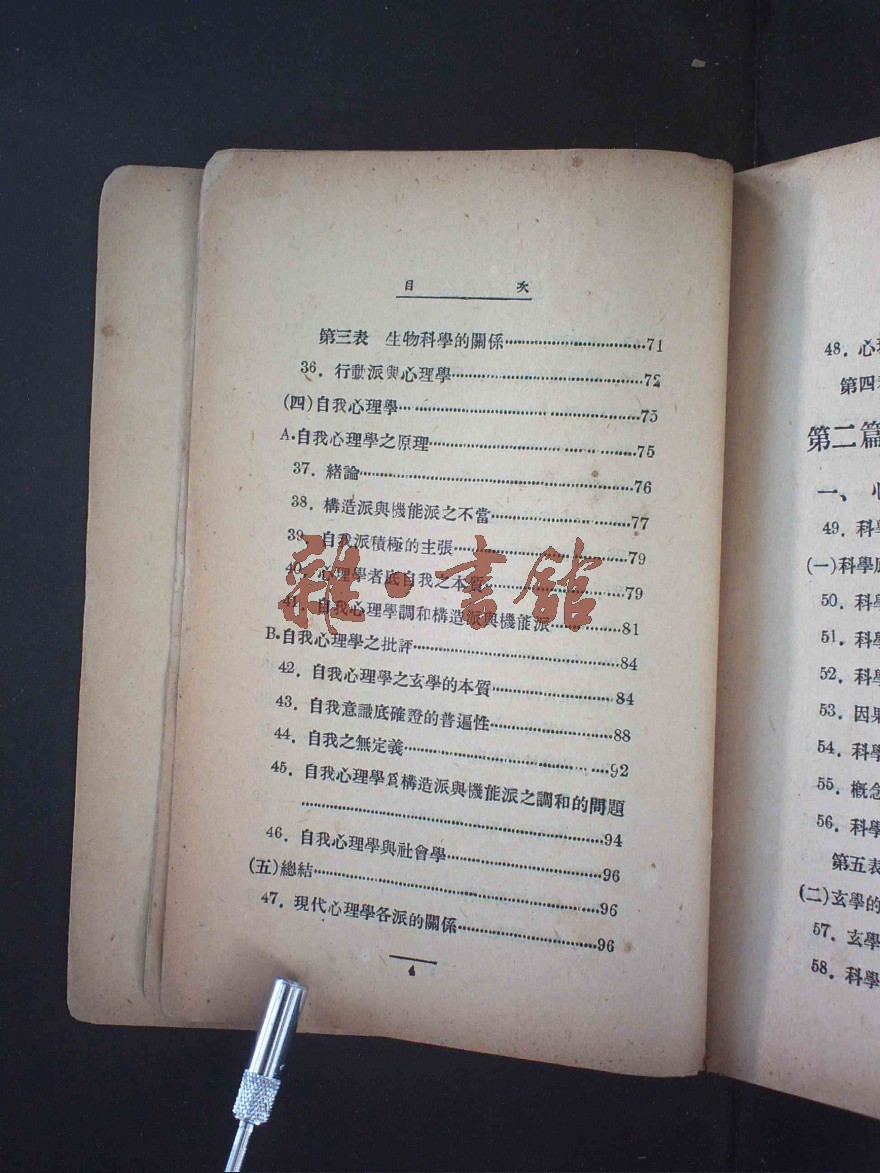 目 次
第三表 生物科學的關係………71
36．行動派與心理學………72
(四)自我心理學………75
A.自我心理學之原理………75
37．緒論………76
38．構造派與機能派之不當………77
39．自我派積極的主張………79
40．心理學者底自我之本質………79
41．自我心理學調和構造派與機能派………81
B.自我心理學之批評………84
42．自我心理學之玄學的本質………84
43．自我意識底確證的普遍性………88
44．自我之無定義………92
45．自我心理學爲構造派與機能派之調和的問題
………94
46．自我心理學與社會學………96
(五)總結………96
47．現代心理學各派的關係………96
4
雜·書館
48．心
第四
第二篇
一、心
49．科學
(一)科學
50．科學
51．科學
52．科學
53．因果
54．科學
55．概念
56．科學
第五表
(二)玄學的
57．玄學
58．科學